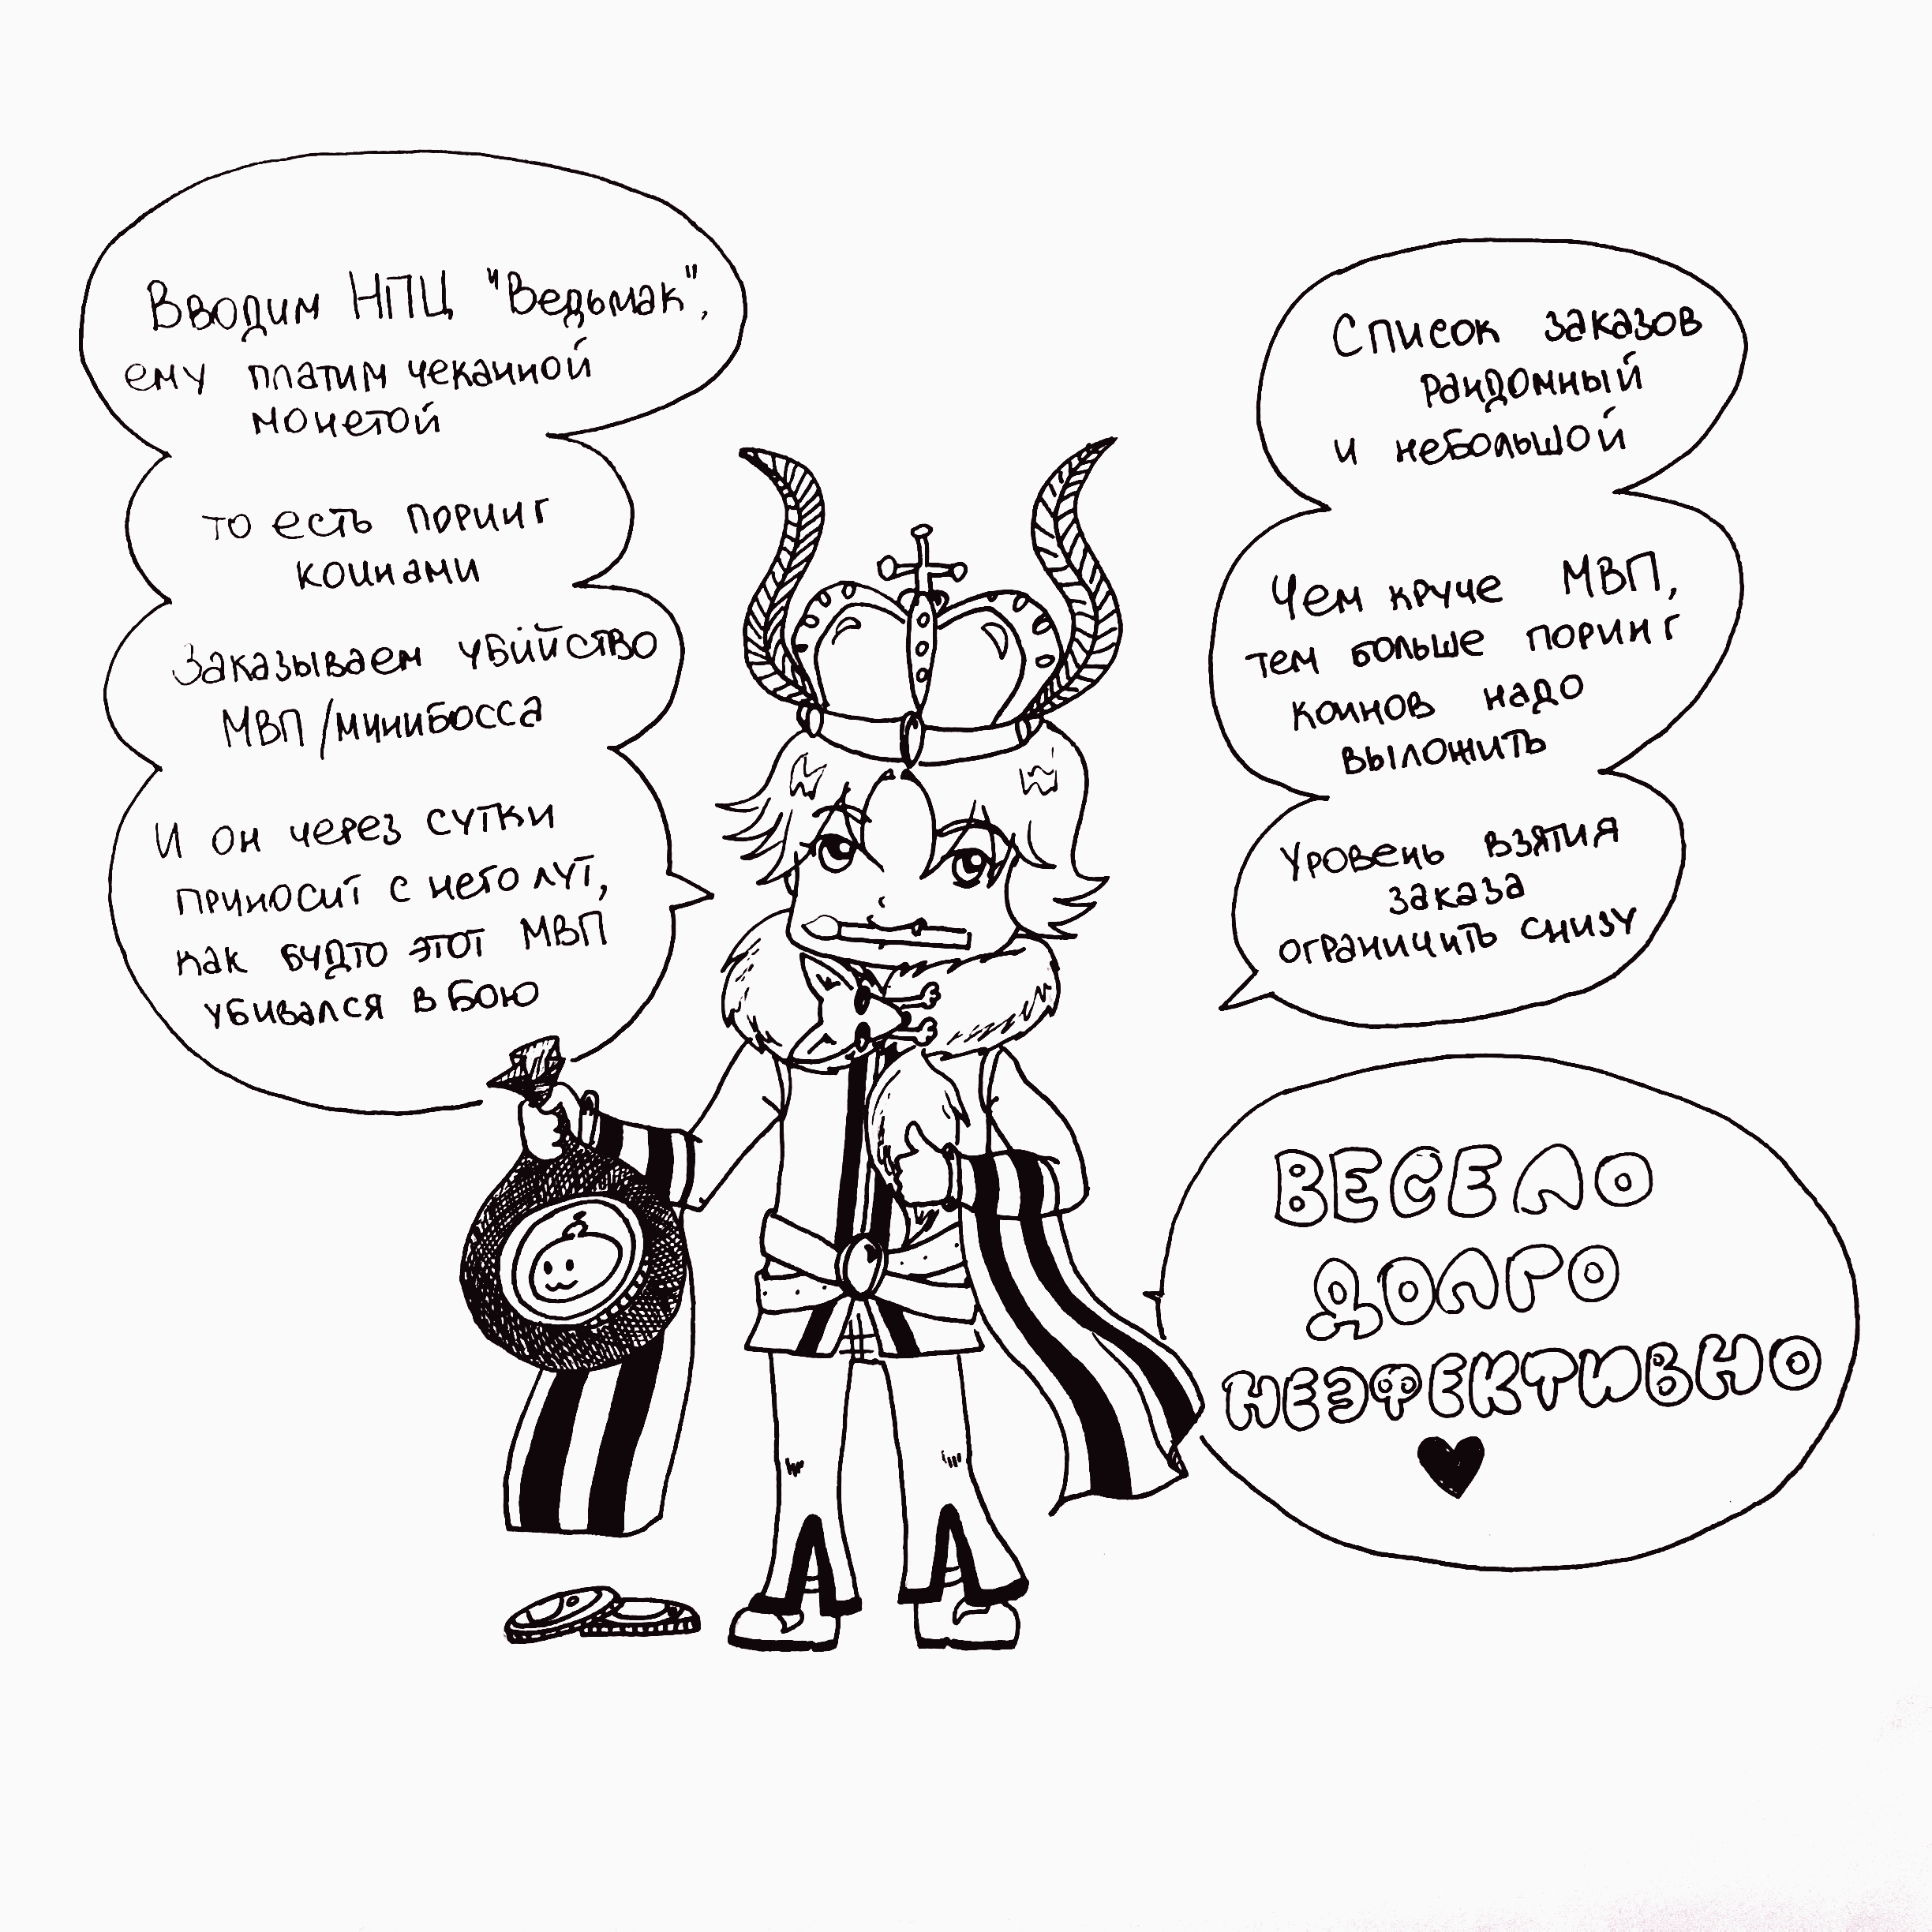 Вводим НПЦ "Ведьмак",
ему платим чеканной
монетой
то есть поринг
коинами
Заказываем убийство
МВП/минибосса
И он через сутки
приносит с него лут,
как будто этот МВП
убивался в бою
Список заказов
рандомный
и небольшой
Чем круче МВП,
тем больше поринг
коинов надо
выложить
Уровень взятия
заказа
ограничить снизу
ВЕСЕЛО
ДОЛГО
НЕЭФЕКТИВНО